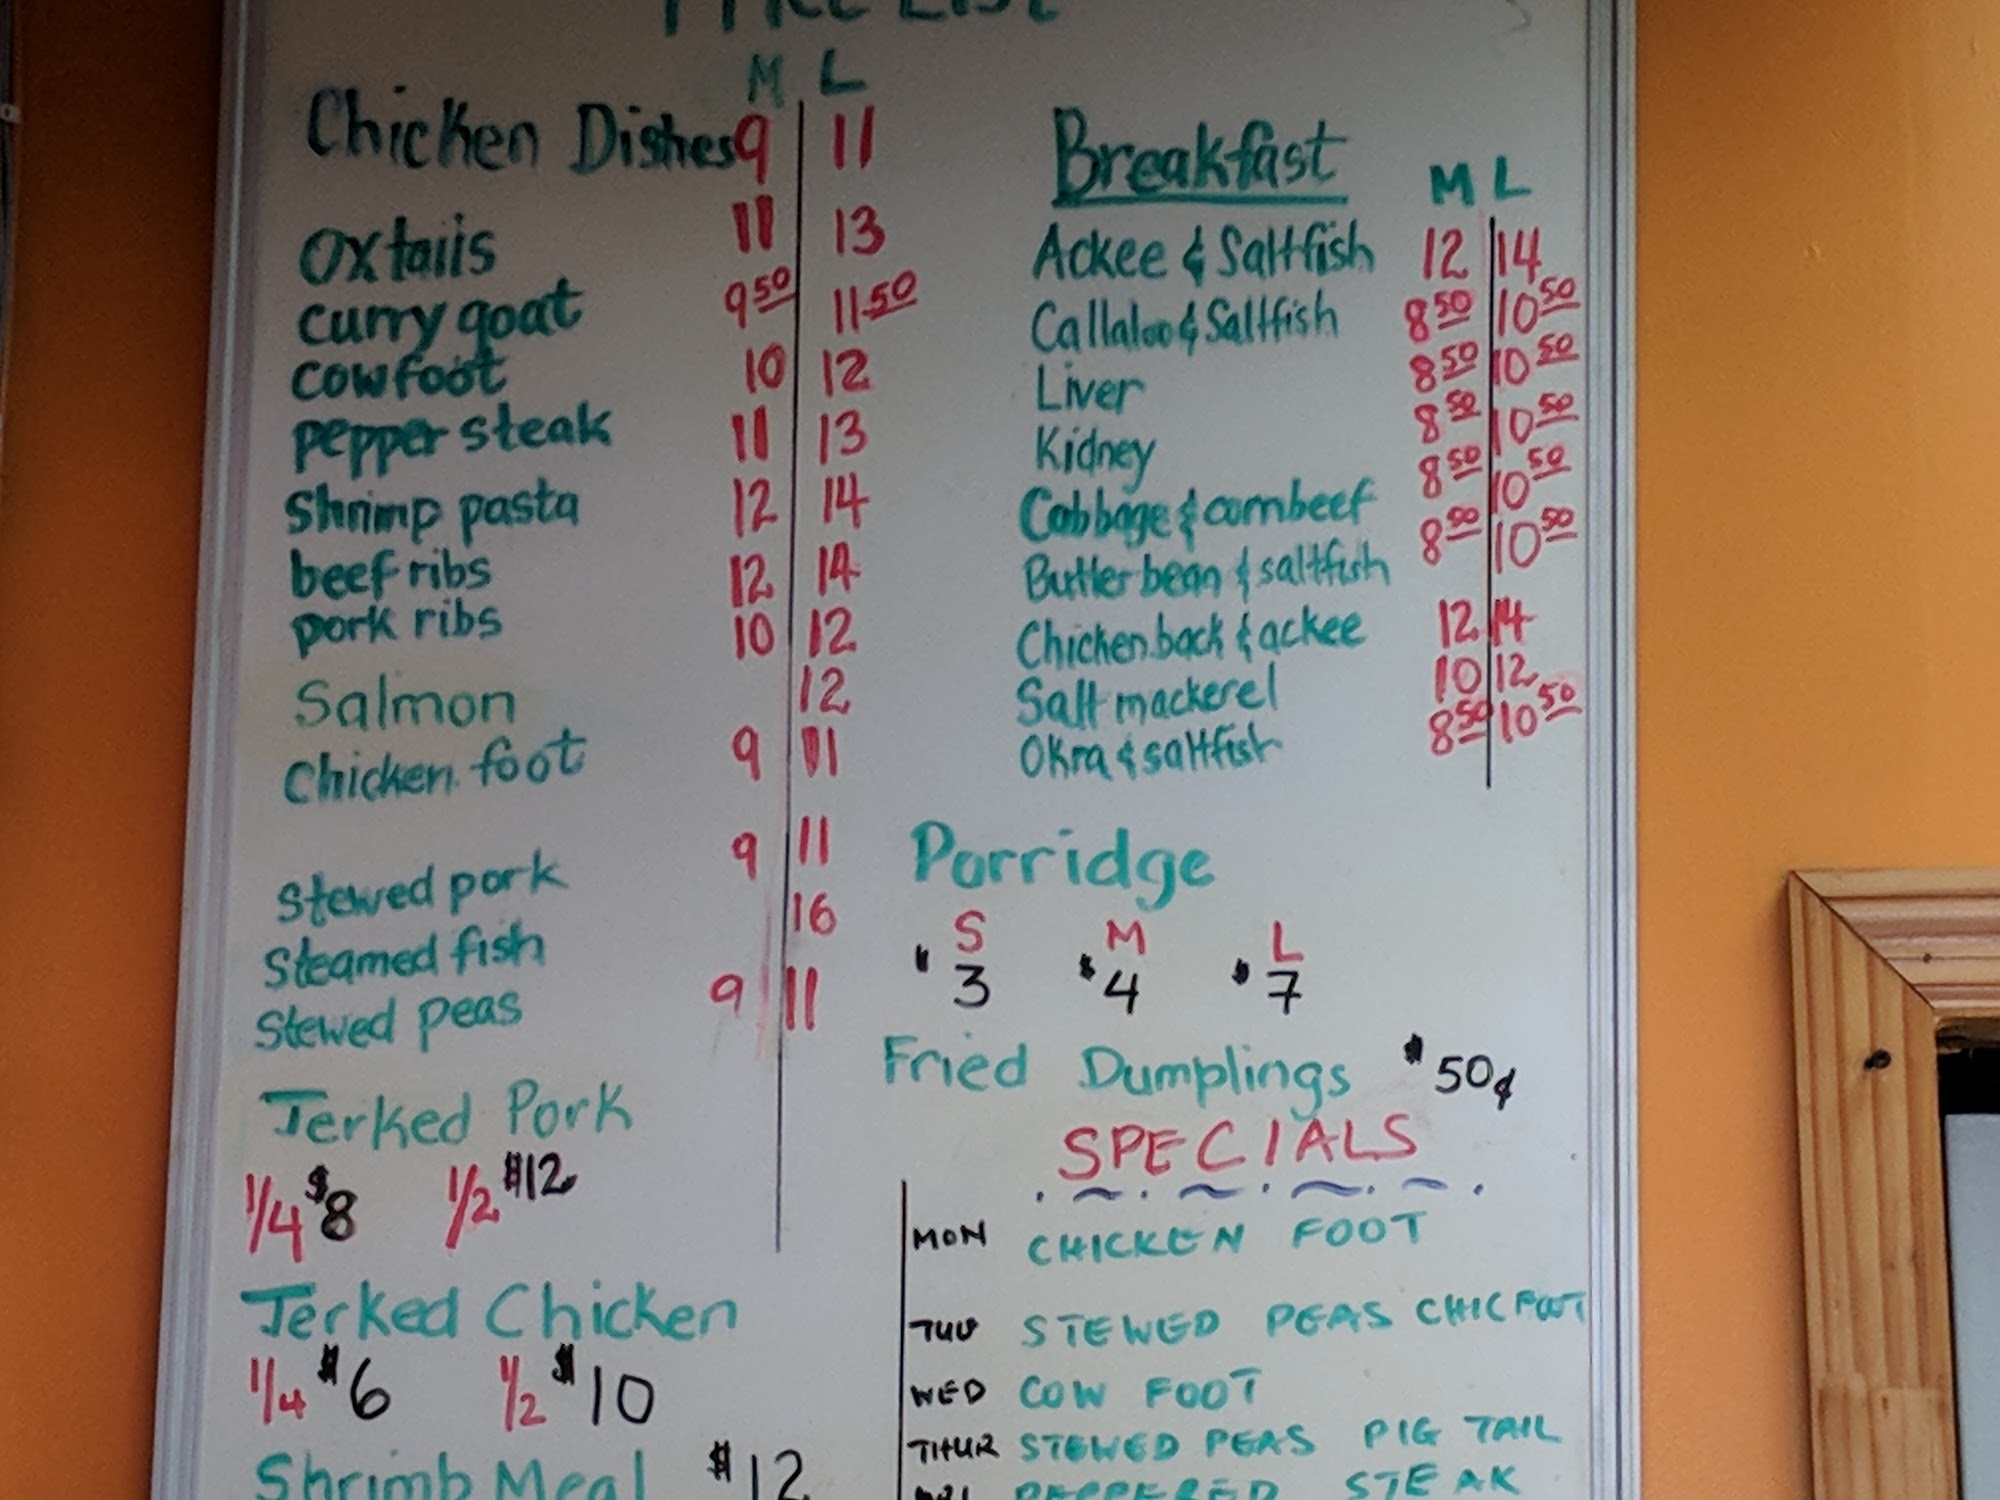 Price List
M L
Chicken Dishes 9 11
Oxtails 11 13
Curry goat 9.50 11.50
Cowfoot 10 12
pepper steak 11 13
Shrimp pasta 12 14
beef ribs 12 14
pork ribs 10 12
Salmon 12
Chicken foot 9 11
Stewed pork 9 11
Steamed fish 16
Stewed peas 9 11
Jerked Pork
1/4 $8 1/2 $12
Jerked Chicken
1/4 $6 1/2 $10
Shrimb Meal $12
Breakfast
M L
Ackee & Saltfish 12 14
Callaloo & Saltfish 8 50 10 50
Liver 8 50 10 50
Kidney 8 50 10 50
Cabbage & cornbeef 8 50 10 50
Butter bean & saltfish 8 50 10 50
Chicken back & ackee 12 14
Salt mackerel 10 12
Okra & saltfish 8 50 10 50
Porridge
S M L
$3 $4 $7
Fried Dumplings $50¢
SPECIALS
MON CHICKEN FOOT
TUU STEWED PEAS CHIC FOOT
WED COW FOOT
THUR STEWED PEAS PIG TAIL
PEPPERED STEAK